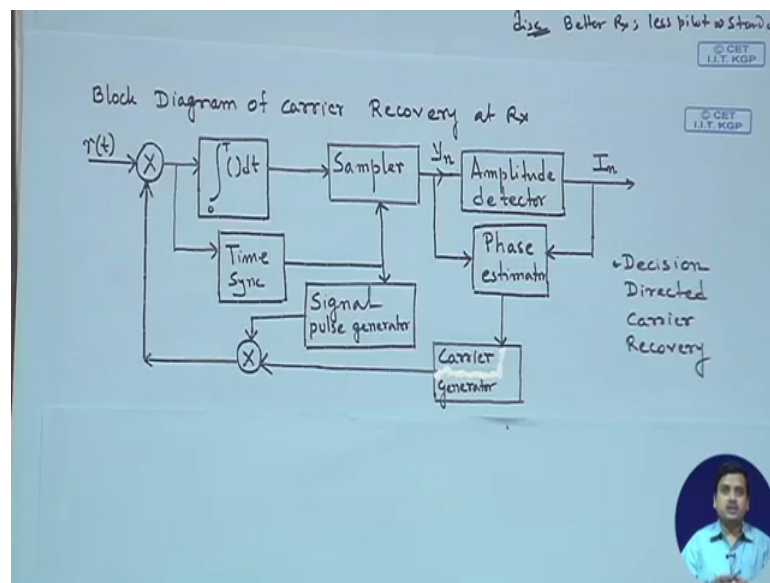 disc Better Rx; less pilot
© CET
I.I.T. KGP
Block Diagram of Carrier Recovery at Rx
© CET
I.I.T. KGP
r(t)
X
∫₀ᵀ()dt
Sampler
yn
Amplitude
detector
In
Time
Sync
Phase
estimator
Signal
pulse generator
X
Carrier
generator
Decision
Directed
Carrier
Recovery